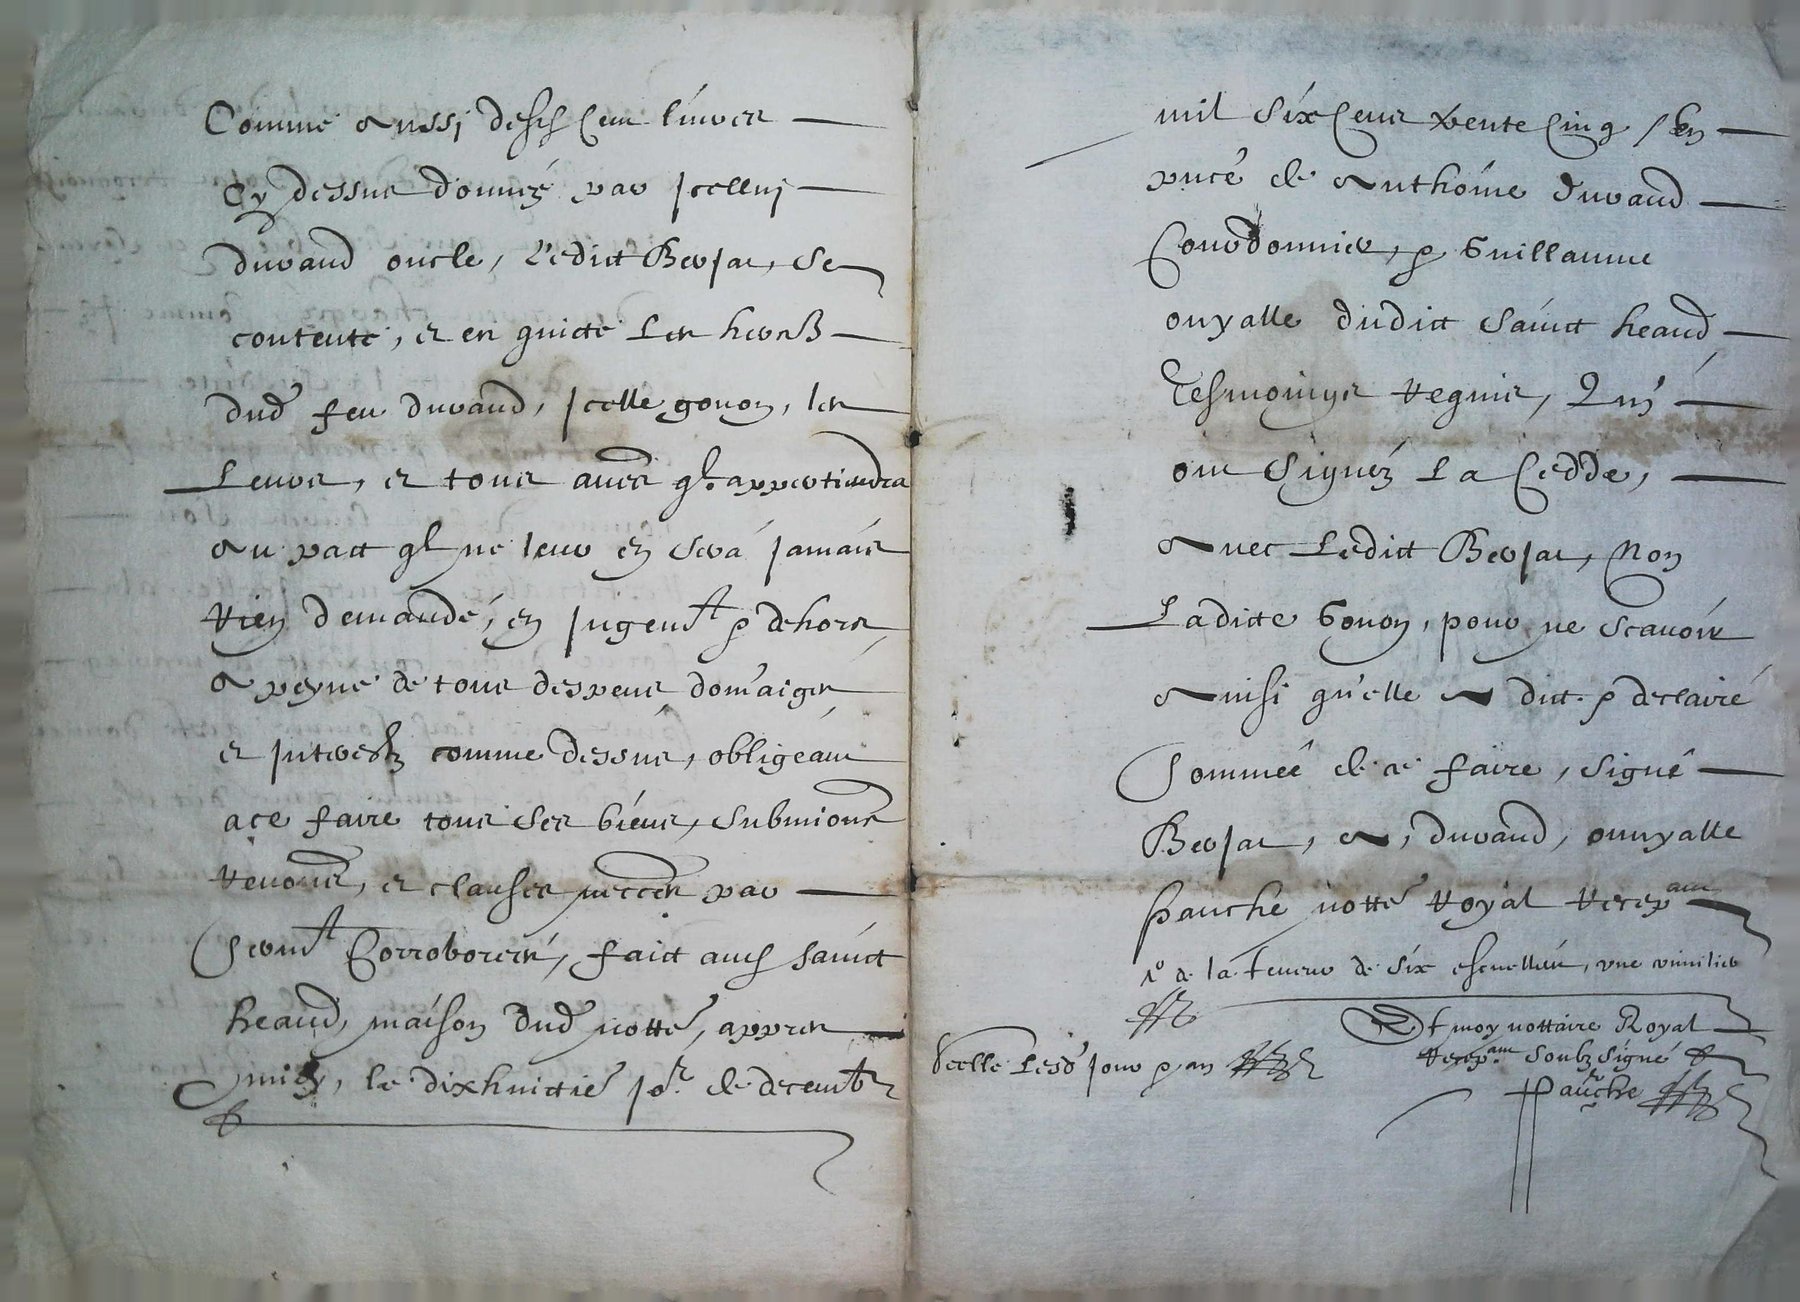 Comme Aussi desd Cent livres
Cy dessus donnéz par Icelluj
durand oncle, Ledict Berjat, se
contente, et en quicte Les heoirs
dud feu durand, Icelle gonon, les
Leurs, et tous aues ql. appertiendra
Au pact ql ne leur en sera Jamais
rien demandé, en Jugemt & dehors,
A peyne de tous despens domaiges
et Interestz comme dessus, obligeant
a ce faire tous ses biens, submions
renons, et clauses neccers par
sermt Corroborees, faict aud sainct
heand, maison dud nottre, appres
midy, le dixhuictie Jor. de decembr
mil Six Cens trente Cinq / En
pnce de Anthoine durand
Courdonnier, & Guillaume
ouyalle dudict Sainct heand
Tesmoings requis, Qui
ont Signéz La Cedde,
Auec Ledict Berjat, Non
Ladicte Gonon, pour ne scauoir
Ainsi qu'elle A dict & declairé
Sommeé de ce faire, signé
Berjat, A, durand, ouuyalle
Pauche nottre Royal recepant
de la teneur de Six
Et moy nottaire Royal
recepant soubz signé
Lesd Jour & an
Pauche